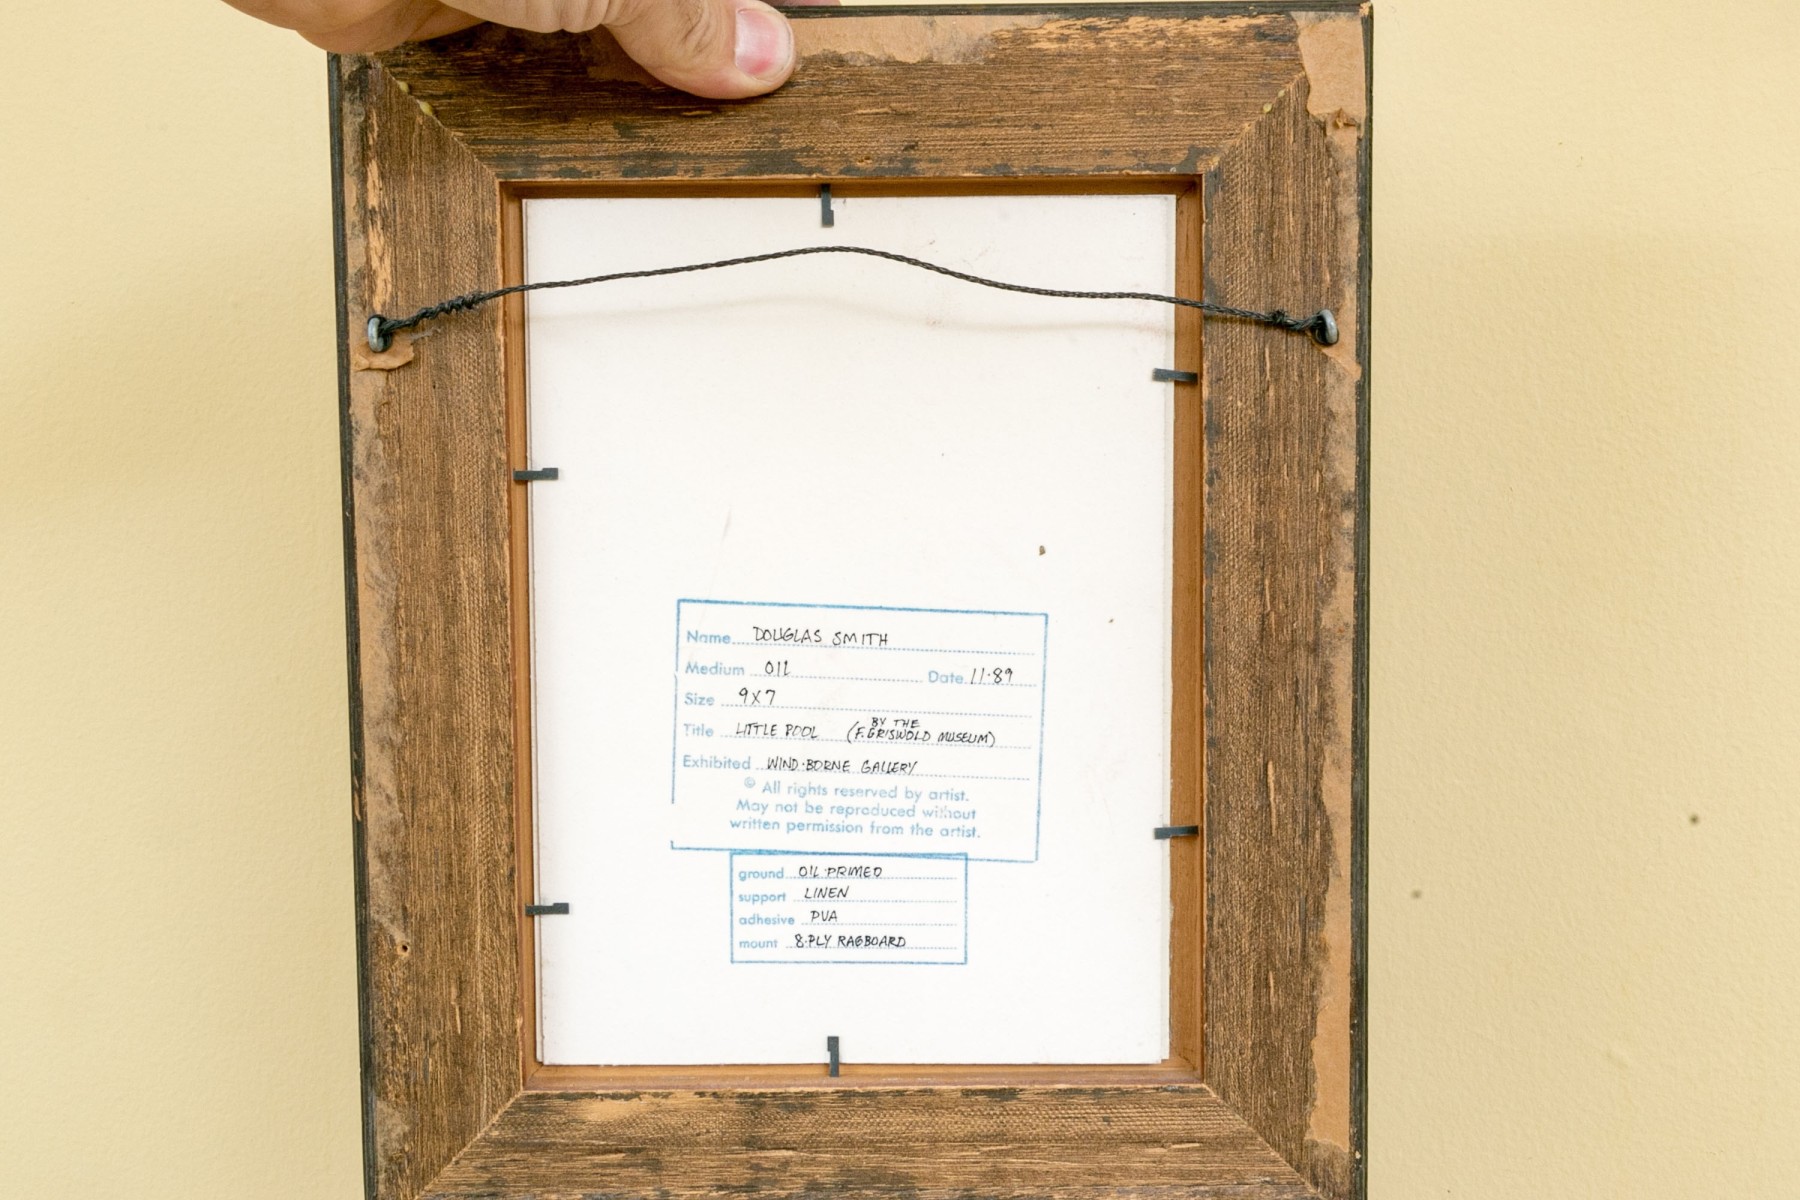 Name DOUGLAS SMITH
Medium OIL Date 11·89
Size 9X7
Title LITTLE POOL (BY THE F. GRISWOLD MUSEUM)
Exhibited WIND·BORNE GALLERY
© All rights reserved by artist.
May not be reproduced without
written permission from the artist.
ground OIL·PRIMED
support LINEN
adhesive PVA
mount 8·PLY RAGBOARD